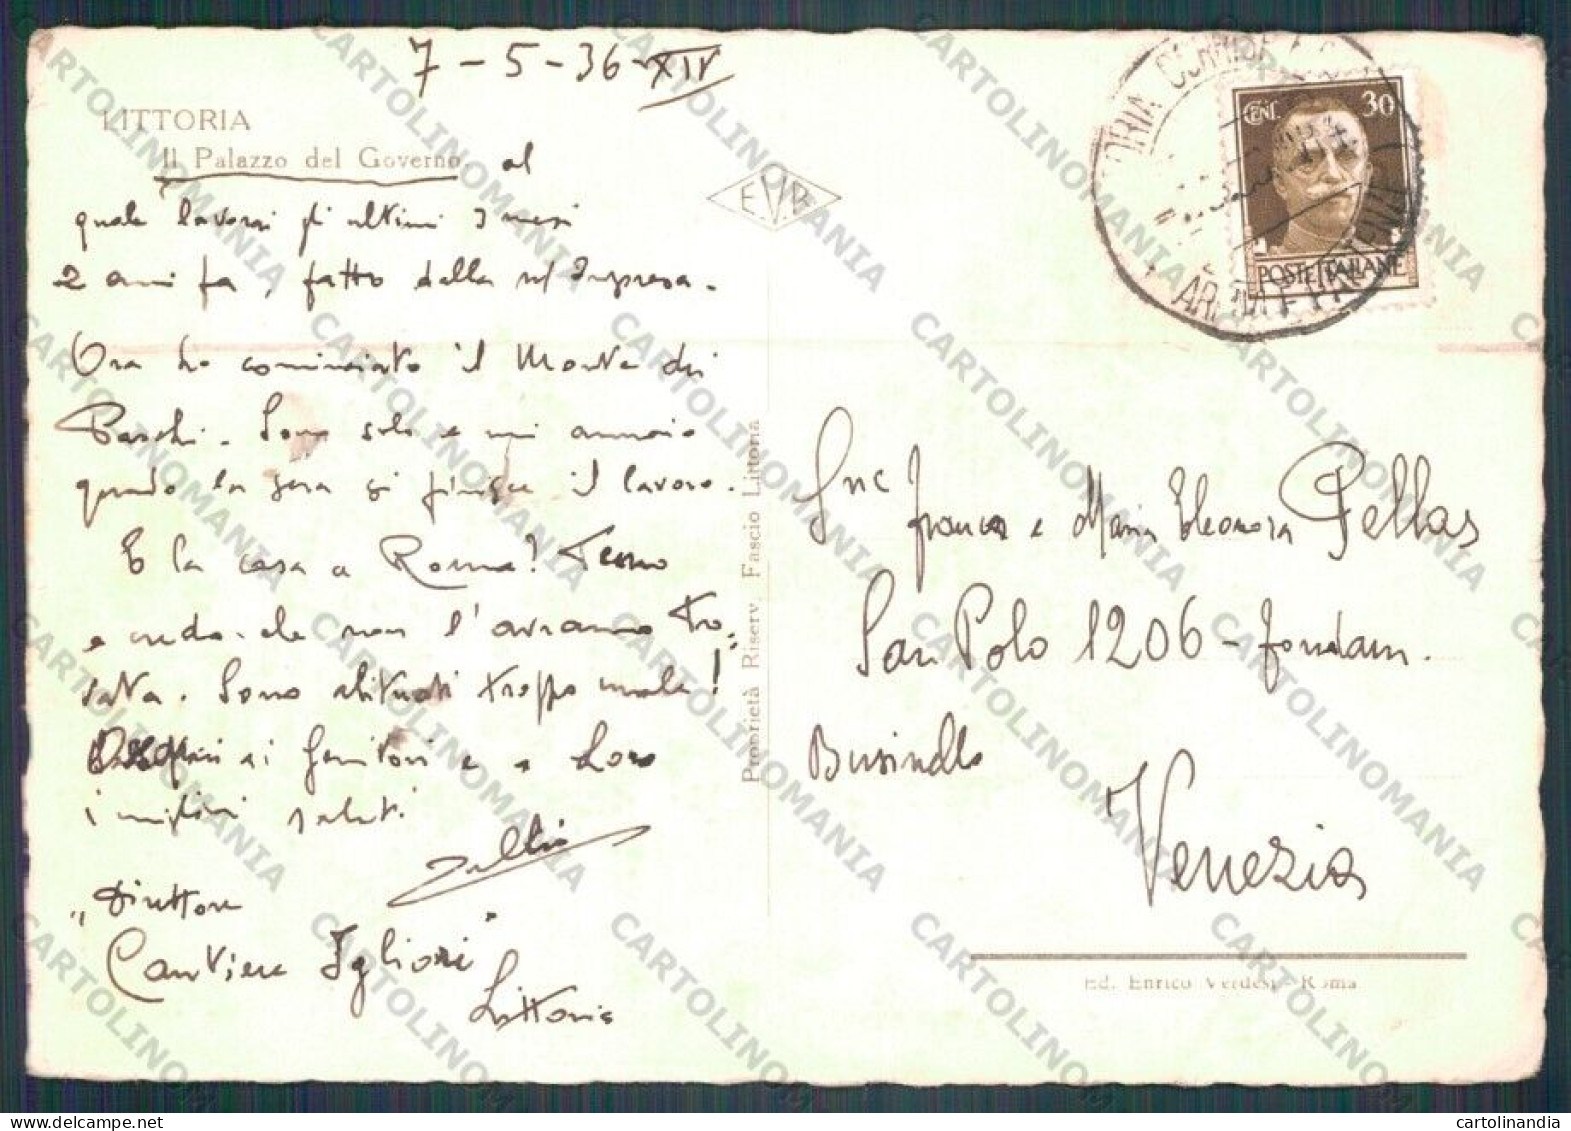 7-5-36-XIV
LITTORIA
Il Palazzo del Governo. al
quale lavorai gli ultimi 3 mesi
2 anni fa, fatto dalla n/ Impresa.
Ora ho cominciato il Monte dei
Paschi. Sono solo e mi annoio
quando la sera si finisce il lavoro.
E la casa a Roma? Temo
e credo che non l'avranno tro-
vata. Sono abituati troppo male!
ai Genitori e a Loro
i migliori saluti.
"Direttore
Cantiere Iglioni"
Littoria
E.V.R
Proprietà Riserv. Fascio Littoria
CENT. 30
POSTE ITALIANE
Franca e Maria Eleonora Pellas
San Polo 1206 - Fondam.
Businello
Venezia
Ed. Enrico Verdesi - Roma
CARTOLINOMANIA
delcampe.net
cartolinandia